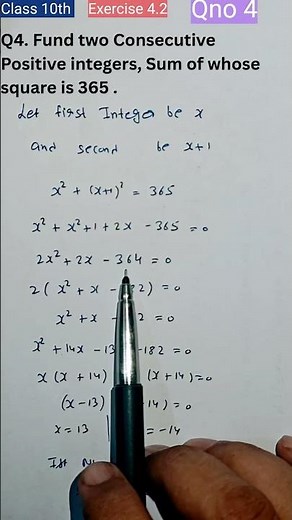 Class 10th Exercise 4.2 Qno 4
Q4. Fund two Consecutive
Positive integers, Sum of whose
square is 365 .
Let first Integer be x
and second be x+1
x² + (x+1)² = 365
x² + x² + 1 + 2x - 365 = 0
2x² + 2x - 364 = 0
2 ( x² + x - 82 ) = 0
x² + x - 2 = 0
x² + 14x - 13 - 182 = 0
x (x + 14) (x + 14) = 0
(x - 13) 14) = 0
x = 13 = -14
Ist